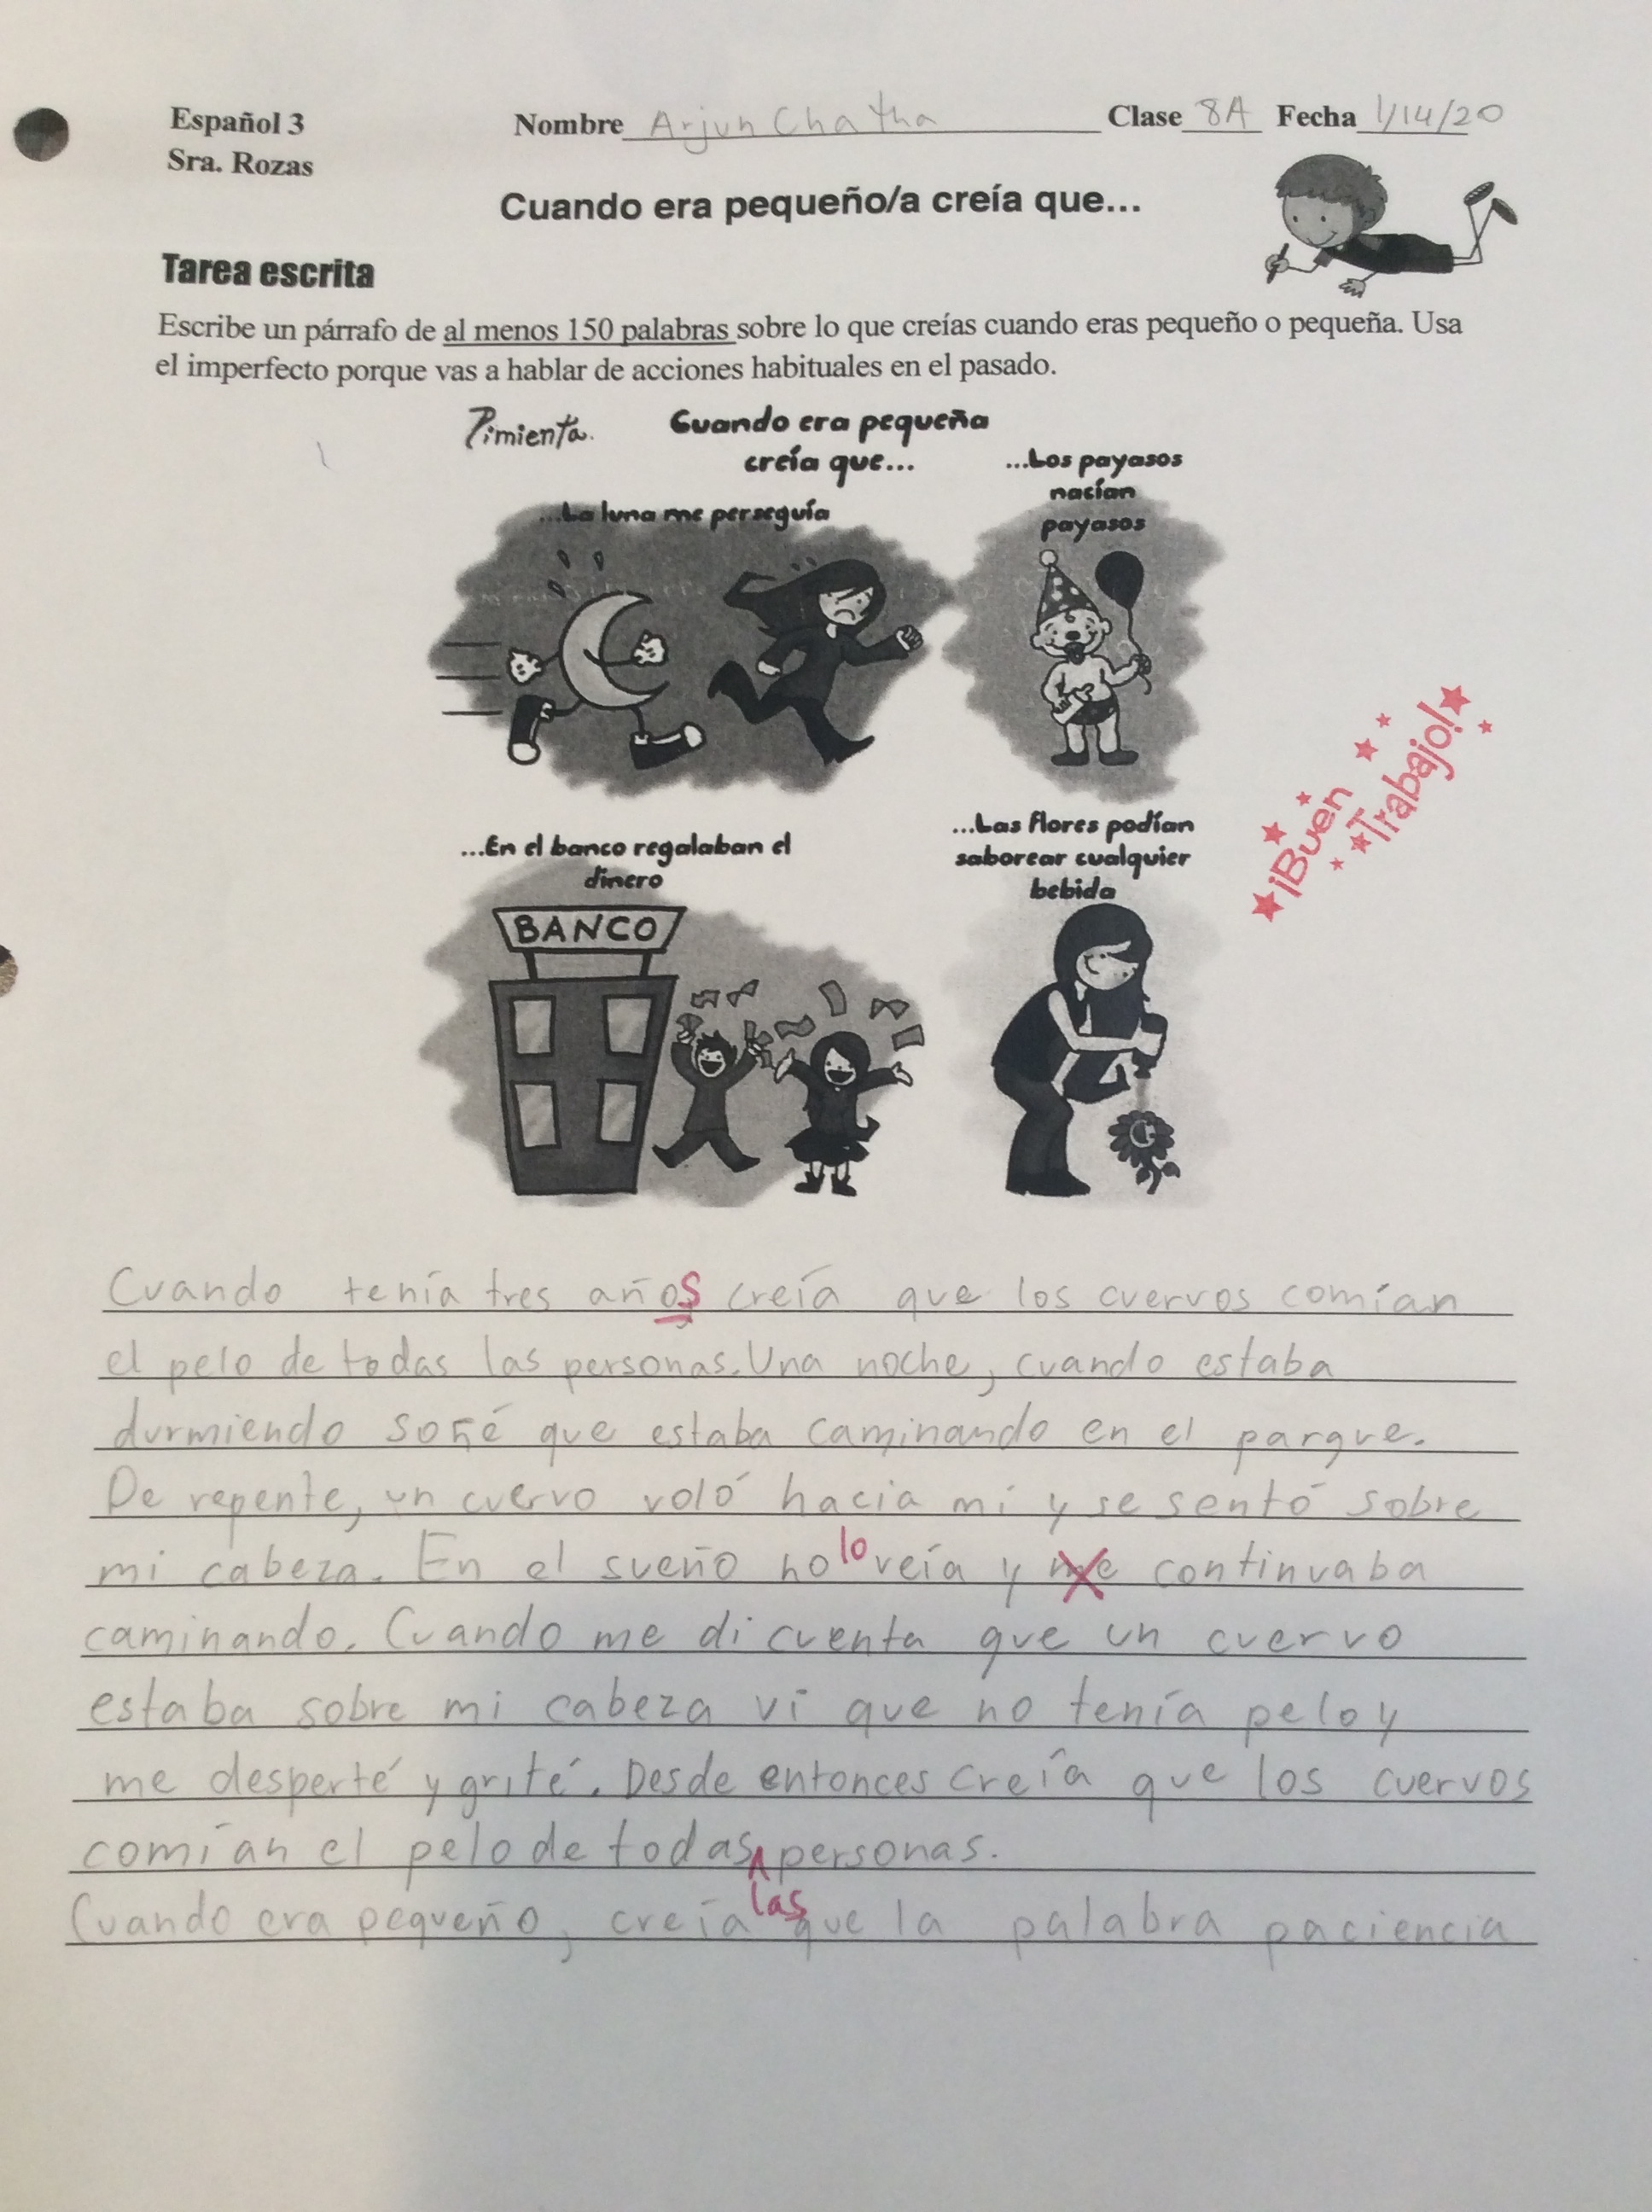 Español 3 Nombre Arjun Chatha Clase 8A Fecha 1/14/20
Sra. Rozas
Cuando era pequeño/a creía que...
Tarea escrita
Escribe un párrafo de al menos 150 palabras sobre lo que creías cuando eras pequeño o pequeña. Usa
el imperfecto porque vas a hablar de acciones habituales en el pasado.
Pimienta.
Cuando era pequeña
creía que...
...La luna me perseguía
...Los payasos
nacían
payasos
...En el banco regalaban el
dinero
BANCO
...Las flores podían
saborear cualquier
bebida
¡Buen
Trabajo!
Cuando tenía tres años creía que los cuervos comían
el pelo de todas las personas. Una noche, cuando estaba
durmiendo soñé que estaba caminando en el parque.
De repente, un cuervo voló hacia mí y se sentó sobre
mi cabeza. En el sueño no lo veía y me continuaba
caminando. Cuando me di cuenta que un cuervo
estaba sobre mi cabeza vi que no tenía pelo y
me desperté y grité. Desde entonces creía que los cuervos
comían el pelo de todas personas.
las
Cuando era pequeño, creía que la palabra paciencia